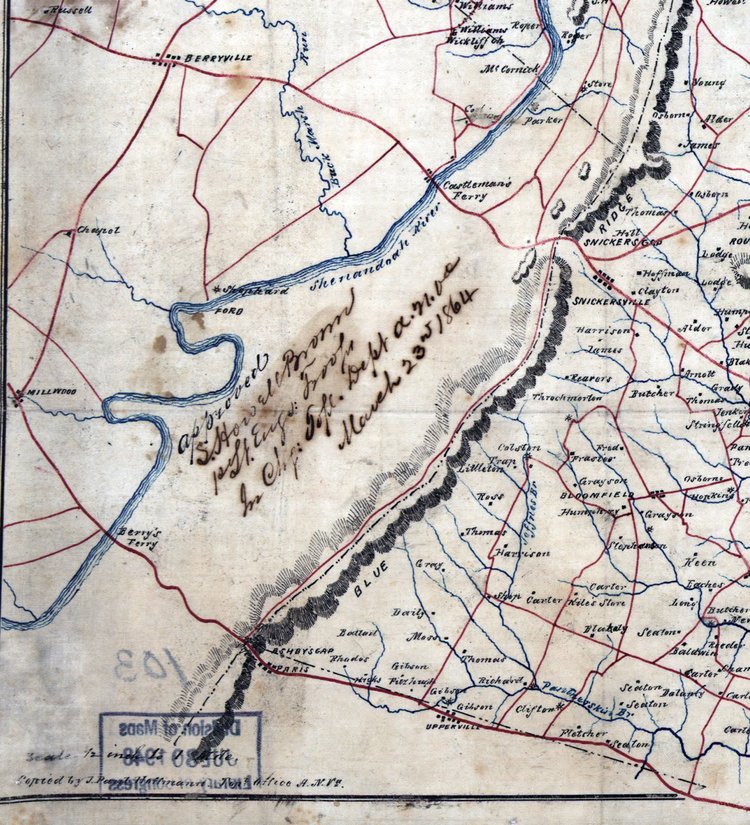 Russell
Williams
Williams
Wickliffch
Roper
Roper
BERRYVILLE
McCormick
Store
Young
Osborne
Alder
Parker
James
Buck Marsh
Run
Castleman's
Ferry
Osborn
Thomas
RIDGE
Hill
SNICKERS GAP
Lodge
Chapel
Shenandoah River
Hoffman
Clayton
Lodge
Shephard
FORD
SNICKERSVILLE
Harrison
Alder
James
approved
S. Howell Brown
1st Lt. Engs. Troops
In Chg: Top. Dept A.N.Va
March 23rd 1864
Reavers
Arnolt
Butcher
Throckmorton
Thomas
MILLWOOD
Colston
Trap
Littleton
Fred
Frasier
Grayson
Osborne
BLOOMFIELD
Hopkins
Ross
Humphrey
Grayson
Jeffries Br.
Thomas
Stephenson
Berry's
Ferry
Harrison
Keen
BLUE
Gray
Carter
Eaches
Shop
Carter
Kiles Store
Long
Butcher
Baily
Ballard
Moss
Blakely
Seaton
Reeder
Baldwin
ASHBYS GAP
PARIS
Rhodes
Gibson
Thomas
Carter
Fitzhugh
Richard
Seaton
Seaton
Gibson
Gibson
Clifton
Pantherskin Br.
UPPERVILLE
Fletcher
Seaton
103
Division of Maps
1948
Scale 1/2 in
Copied by J. Paul Hoffmann Top. Office A.N.Va.